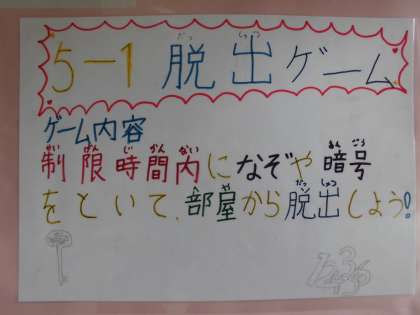 5-1 脱出ゲーム
ゲーム内容
制限時間内になぞや暗号
をといて、部屋から脱出しよう!